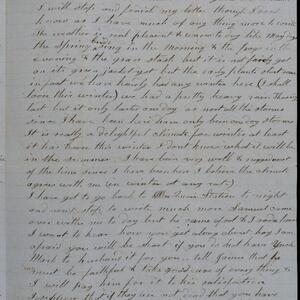 I will stop and finish my letter though I dont
know as I have much of any thing more to write
The weather is real pleasant & warm to day like May days
the spring birds sing in the Morning & the frogs in the
evening & the grass starts but it is not
on its green jacket yet but the early plants start some
in fact we have hardly had any winter here (I shall
own this winter) we had a pretty heavy rain Thursday
last but it only lasted one day as most all the storms
since I have been here have only been one day storms
It is really a delightful climate for winter at least
it has been this winter I dont know what it will be
in the summer. I have been very well & rugged most
of the time since I have been here I believe the climate
agrees with me (in winter at any rate)
I have got to go back to Station to night
and must stop to write much more Samuel came
over with me to day but he came afoot & I rode
I want to hear how you get along about hay I am
afraid you will be short if you do
to husband it for you. tell James that he
must be faithful & take good care of every thing &
I will pay him for it to his satisfaction
I suppose that if they are not dead that you